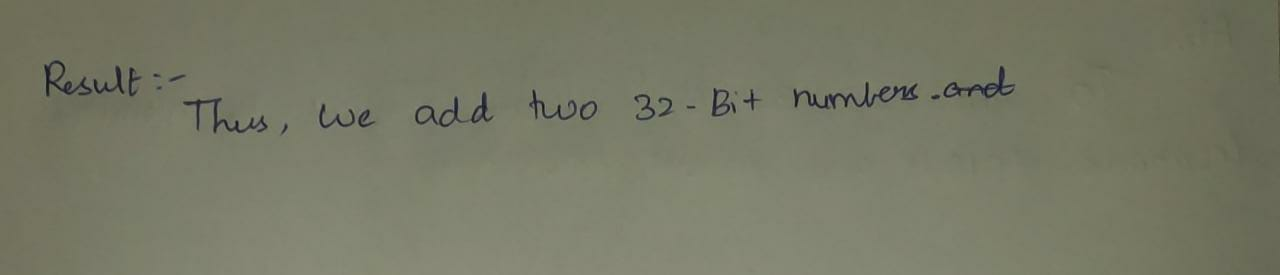 Result :-
Thus, we add two 32-Bit numbers. and